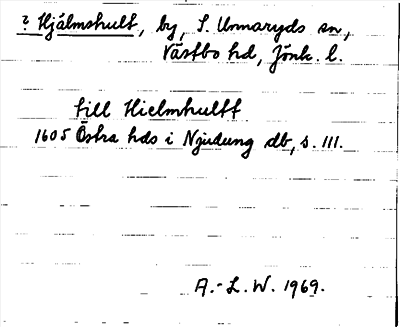 ? Hjälmshult, by, S. Unnaryds sn,
Västbo hd, Jönk. l.
till Hielmhultt
1605 Östra hds i Njudung db, s. 111.
A.-L. W. 1969.